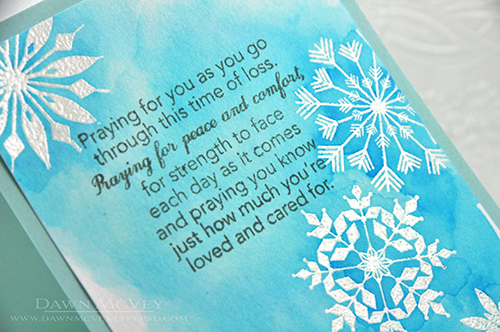 Praying for you as you go
through this time of loss.
Praying for peace and comfort,
for strength to face
each day as it comes
and praying you know
just how much you're
loved and cared for.
Dawn McVey
www.dawnmcvey.typepad.com